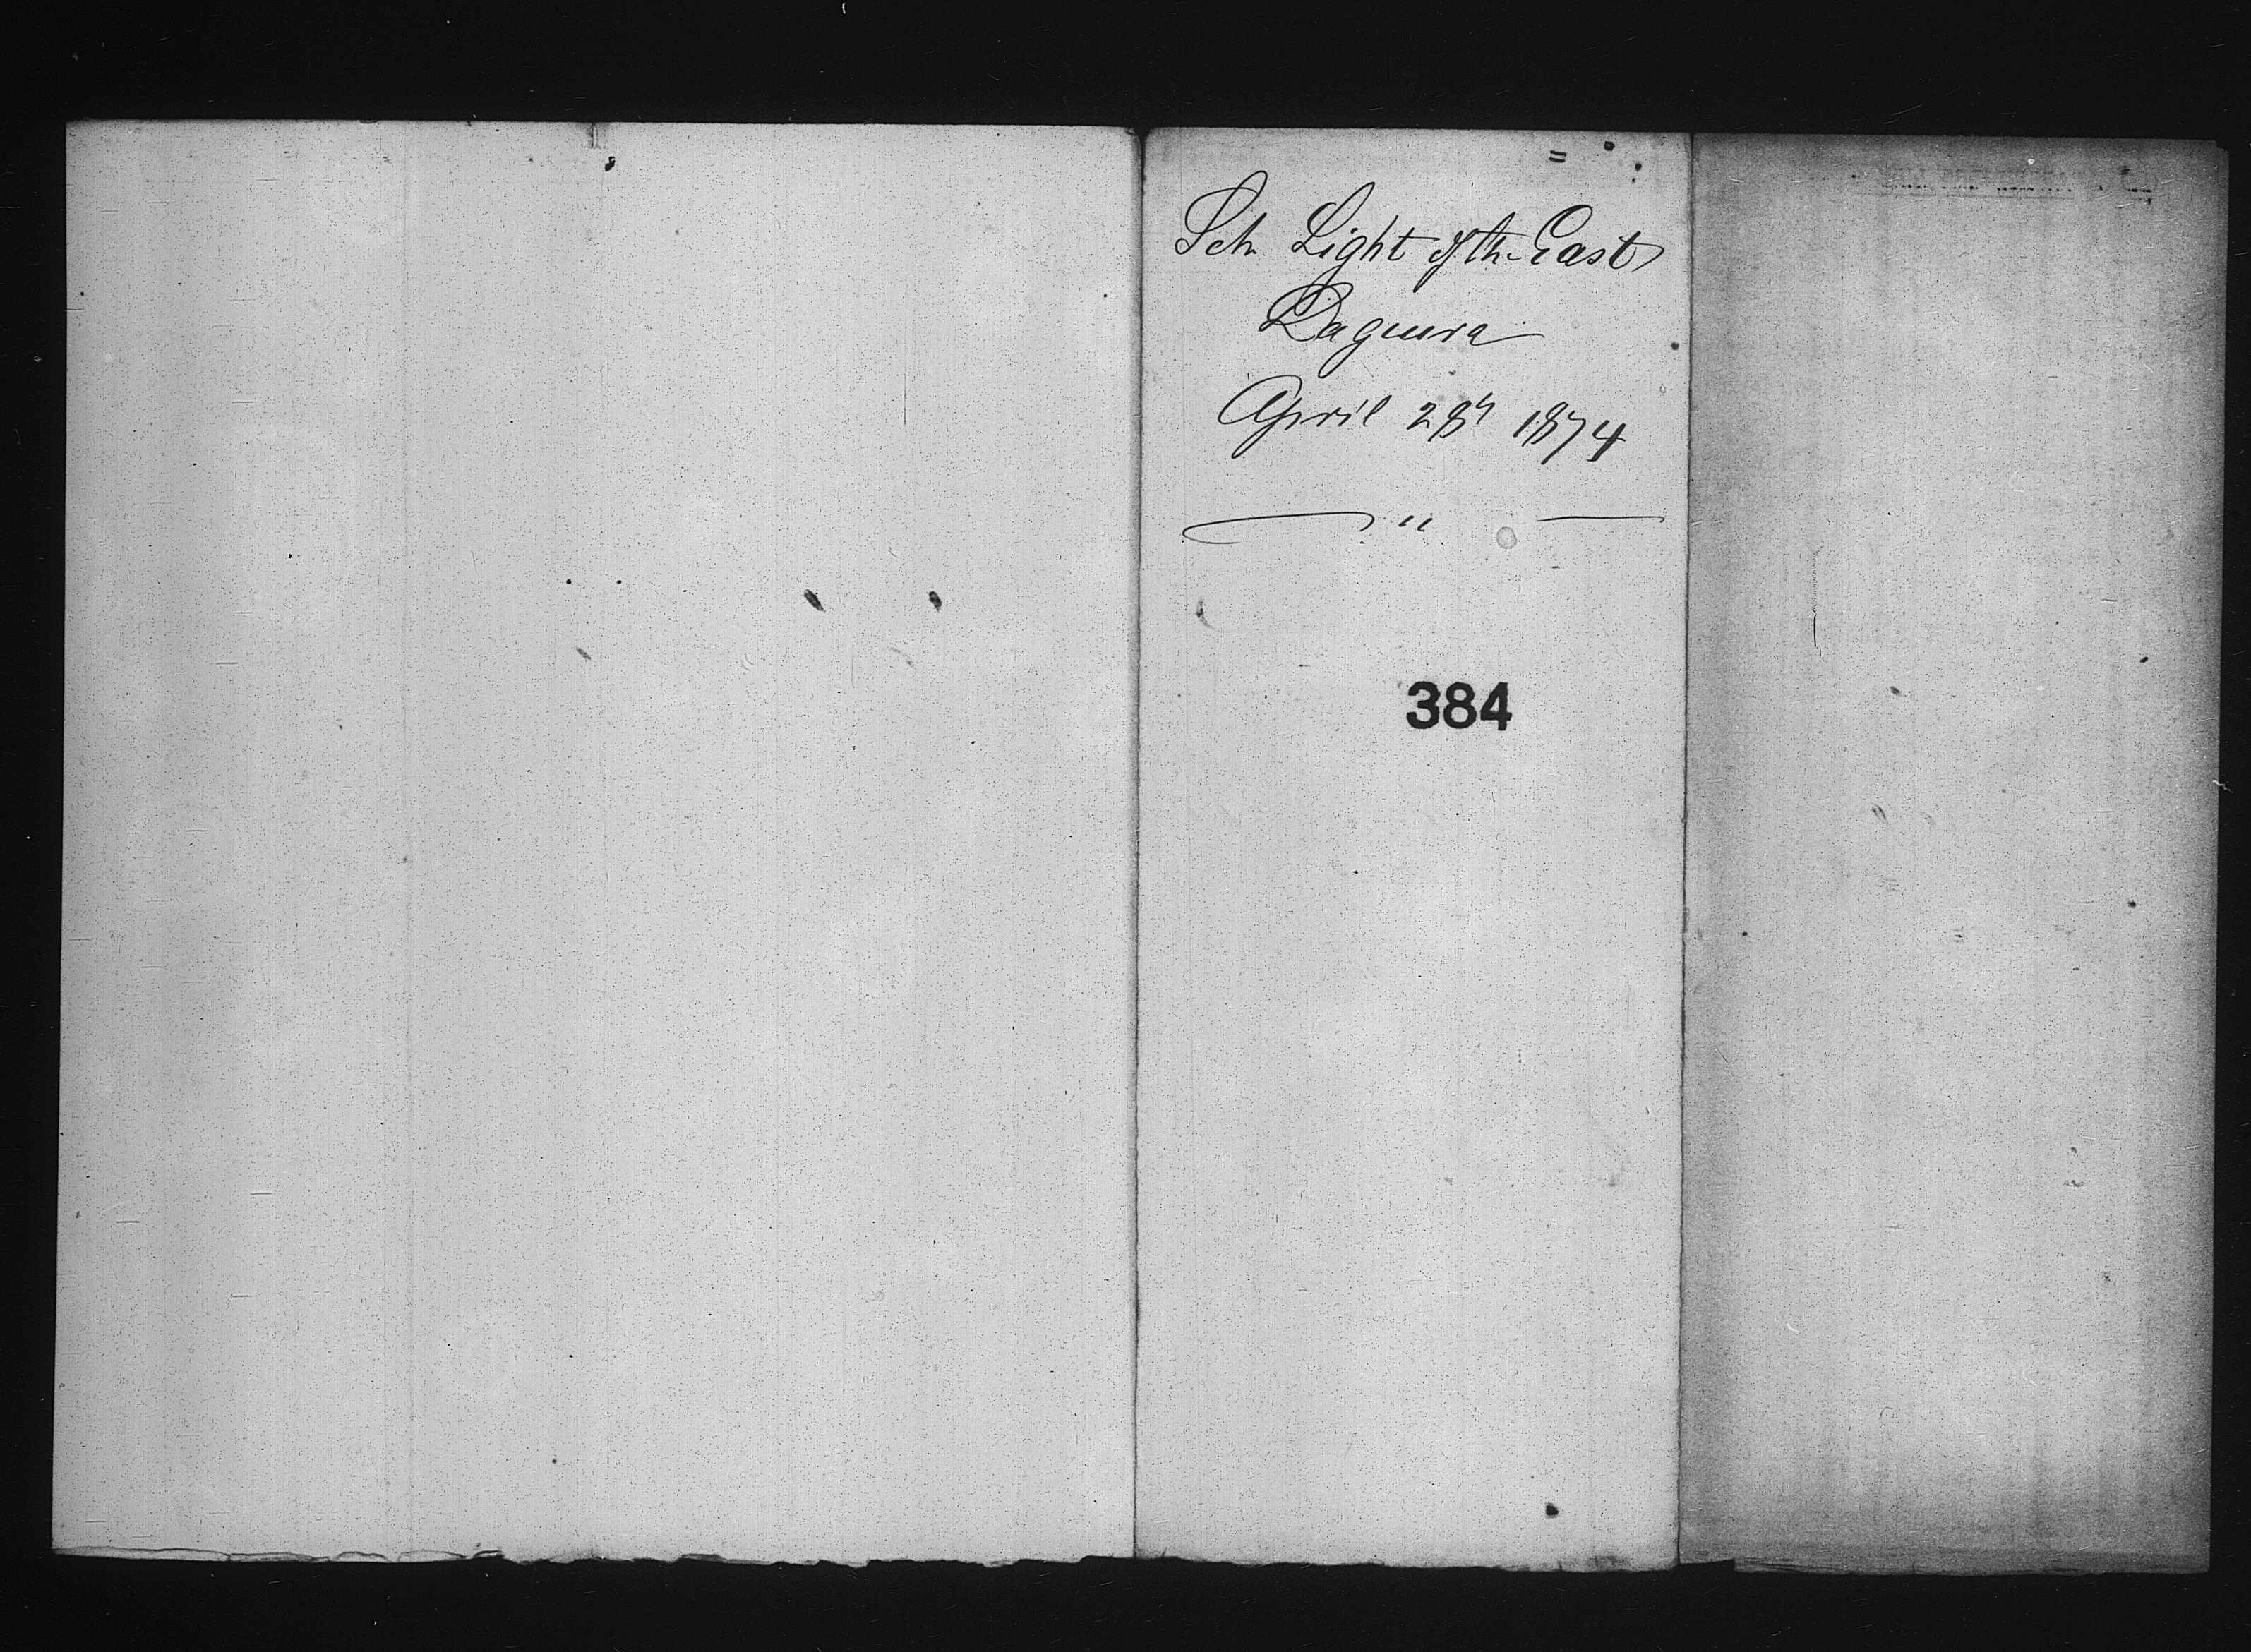 Sch Light of the East
Laguira
April 28th 1874
"
384